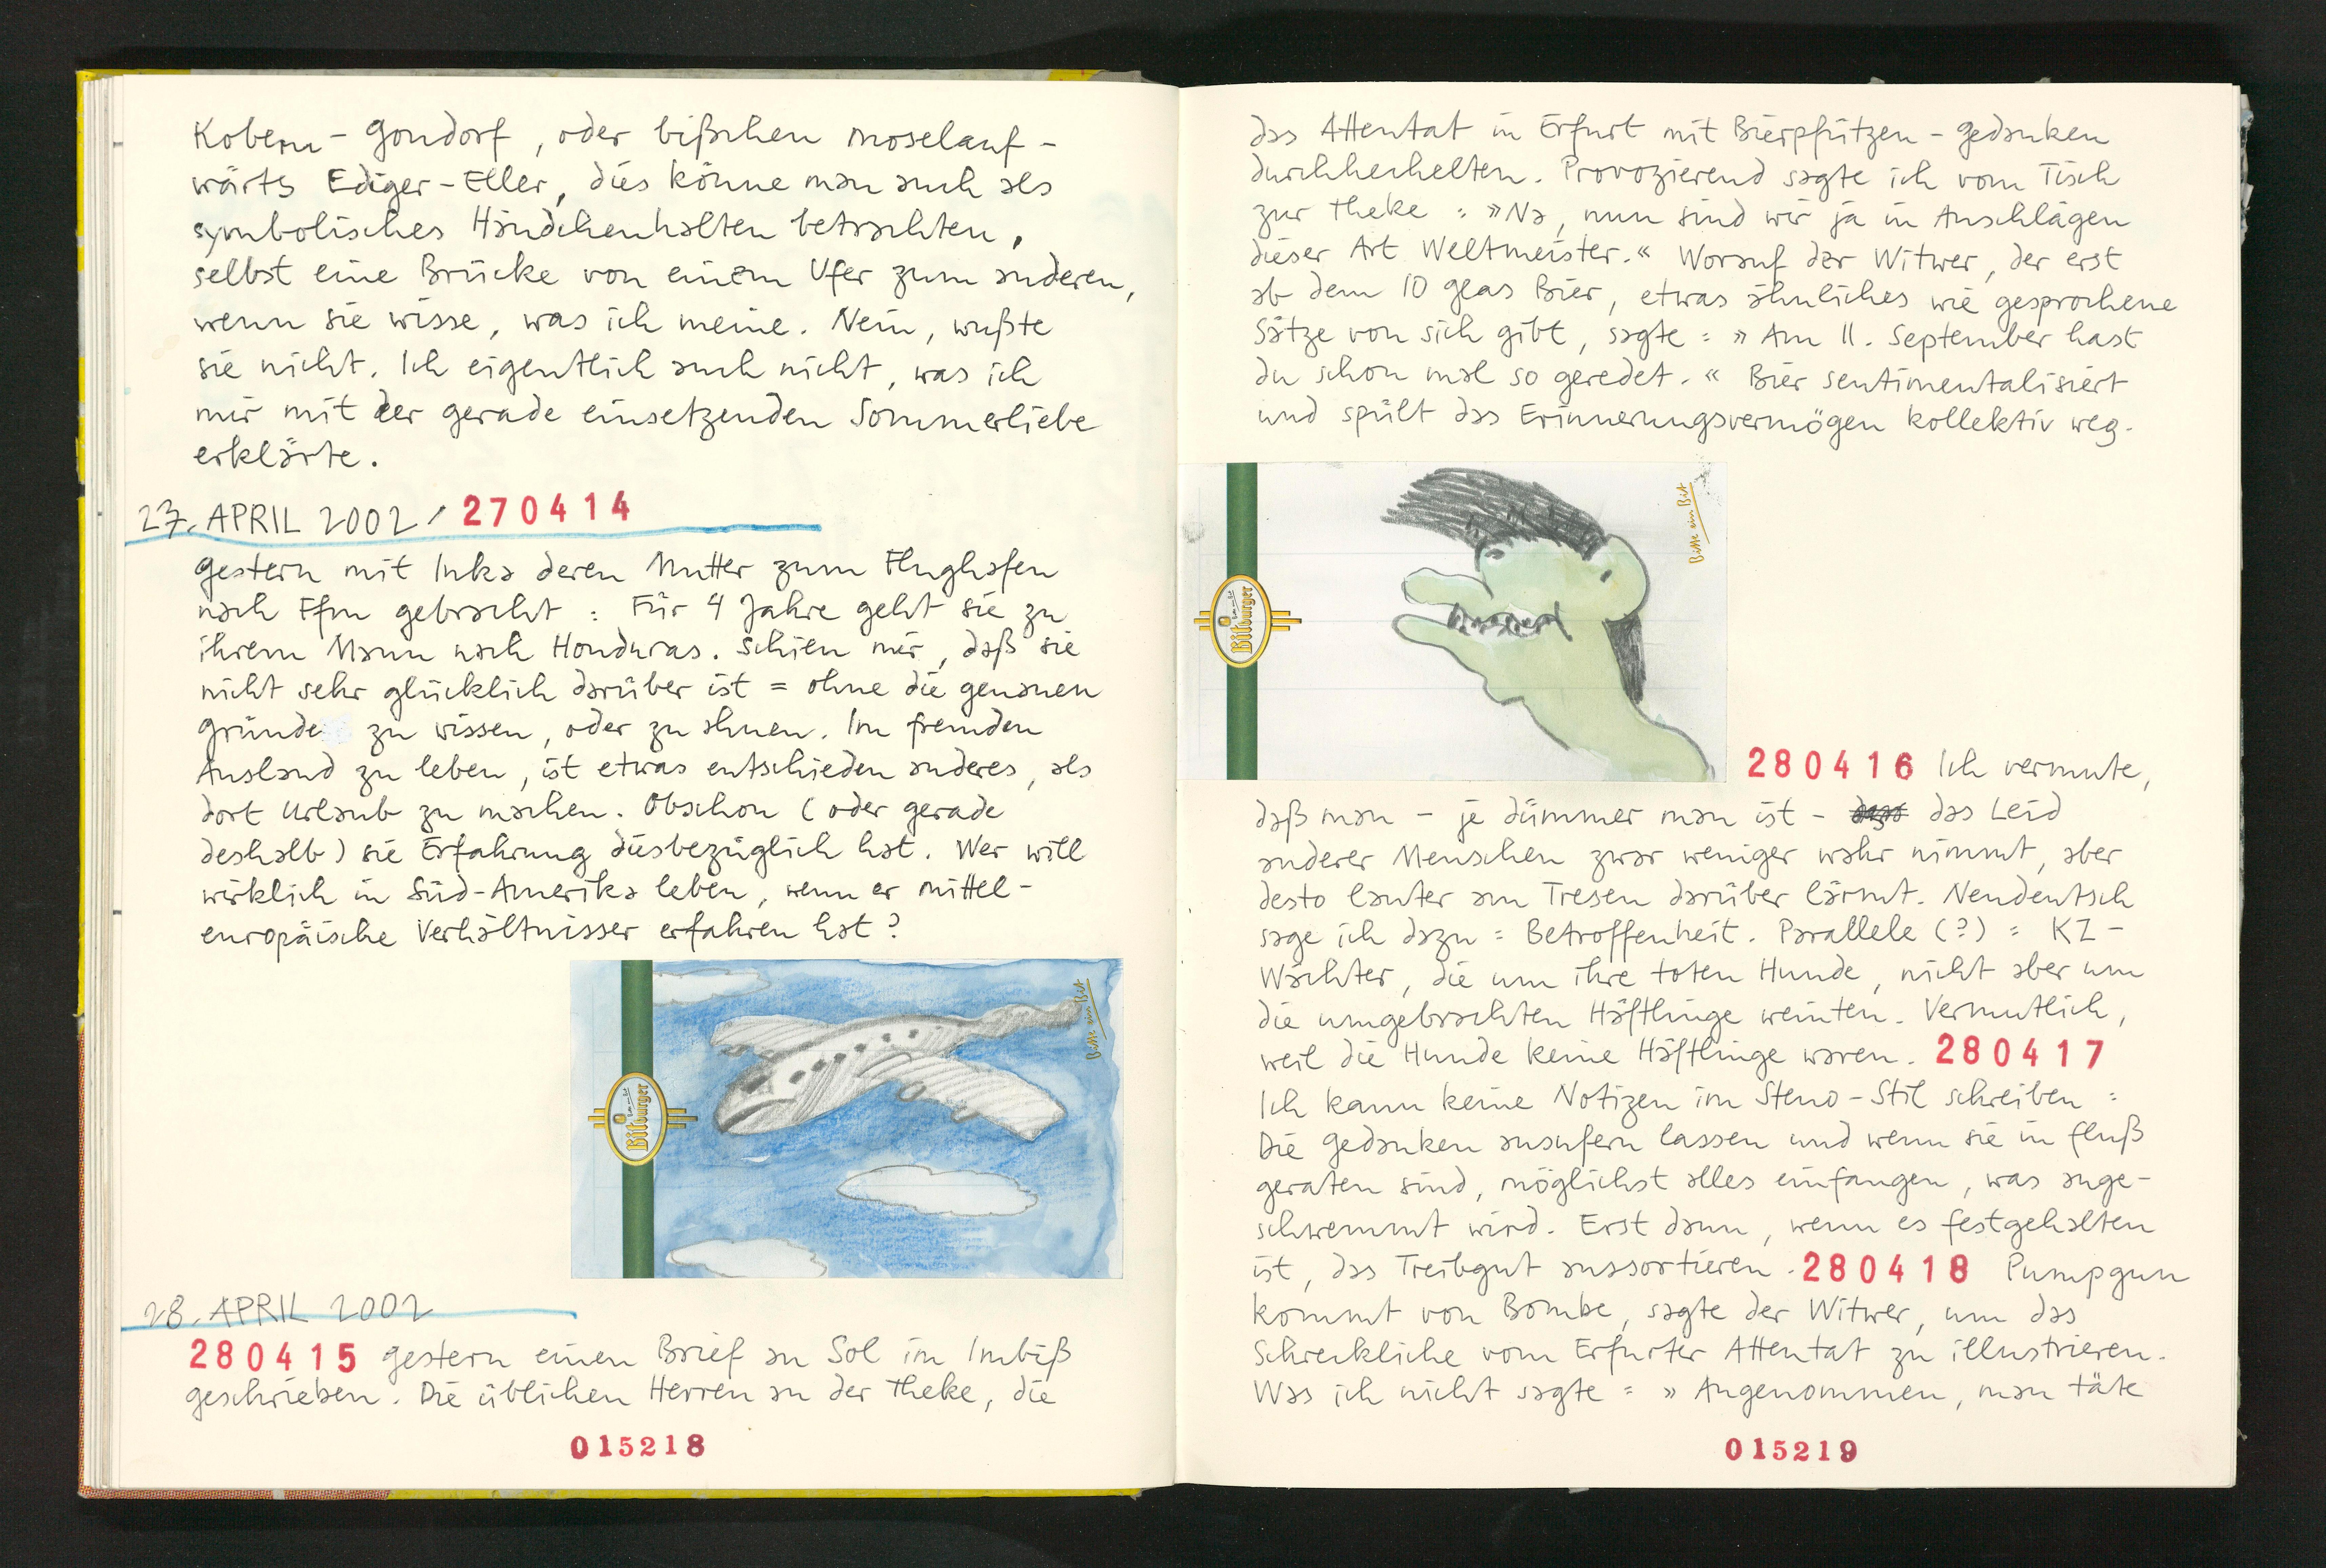 Kobern-Gondorf, oder bißchen moselauf-
wärts Ediger-Eller, dies könne man auch als
symbolisches Händchenhalten betrachten,
selbst eine Brücke von einem Ufer zum anderen,
wenn sie wisse, was ich meine. Nein, wußte
sie nicht. Ich eigentlich auch nicht, was ich
mir mit der gerade einsetzenden Sommerliebe
erklärte.
27. APRIL 2002 / 270414
Gestern mit Inka deren Mutter zum Flughafen
nach Ffm gebracht : Für 4 Jahre geht sie zu
ihrem Mann nach Honduras. Schien mir, daß sie
nicht sehr glücklich darüber ist = ohne die genauen
Gründe zu wissen, oder zu ahnen. Im fremden
Ausland zu leben, ist etwas entschieden anderes, als
dort Urlaub zu machen. Obschon (oder gerade
deshalb) sie Erfahrung diesbezüglich hat. Wer will
wirklich in Süd-Amerika leben, wenn er mittel-
europäische Verhältnisser erfahren hat?
Bitte ein Bit
Bitburger
28. APRIL 2002
280415 Gestern einen Brief an Sol im Imbiß
geschrieben. Die üblichen Herren an der Theke, die
015218
das Attentat in Erfurt mit Bierpfützen-Gedanken
durchhechelten. Provozierend sagte ich vom Tisch
zur Theke : »Na, nun sind wir ja in Anschlägen
dieser Art Weltmeister.« Worauf der Witwer, der erst
ab dem 10 Glas Bier, etwas ähnliches wie gesprochene
Sätze von sich gibt, sagte : »Am 11. September hast
du schon mal so geredet.« Bier sentimentalisiert
und spült das Erinnerungsvermögen kollektiv weg.
Bitte ein Bit
Bitburger
280416 Ich vermute,
daß man - je dümmer man ist - das Leid
anderer Menschen zwar weniger wahr nimmt, aber
desto lauter am Tresen darüber lärmt. Neudeutsch
sage ich dazu = Betroffenheit. Parallele (?) = KZ-
Wächter, die um ihre toten Hunde, nicht aber um
die umgebrachten Häftlinge weinten. Vermutlich,
weil die Hunde keine Häftlinge waren. 280417
Ich kann keine Notizen im Steno-Stil schreiben :
Die Gedanken ausufern lassen und wenn sie in Fluß
geraten sind, möglichst alles einfangen, was ange-
schwemmt wird. Erst dann, wenn es festgehalten
ist, das Treibgut aussortieren. 280418 Pumpgun
kommt von Bombe, sagte der Witwer, um das
Schreckliche vom Erfurter Attentat zu illustrieren.
Was ich nicht sagte = »Angenommen, man täte
015219